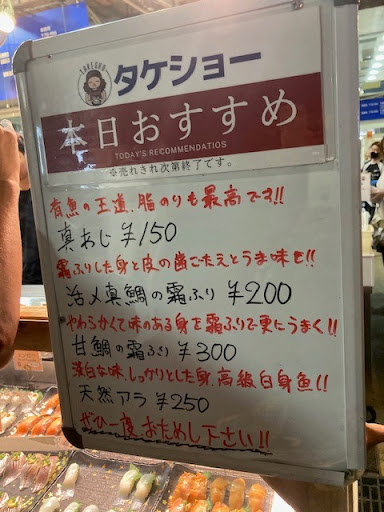 TAKESHO
タケショー
本日おすすめ
TODAY'S RECOMMENDATIOS
※売れきれ次第終了です。
青魚の王道、脂のりも最高です!!
真あじ ¥150
霜ふりした身と皮の歯ごたえとうま味を!!
活〆真鯛の霜ふり ¥200
やわらかくて味のある身を霜ふりで更にうまく!!
甘鯛の霜ふり ¥300
淡白な味、しっかりとした身、高級白身魚!!
天然アラ ¥250
ぜひ一度、おためし下さい!!